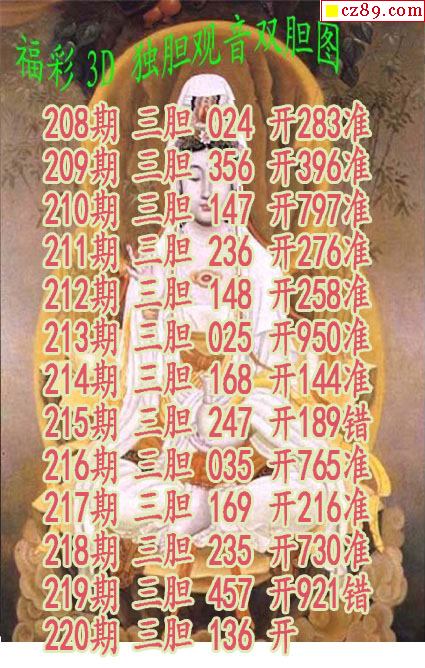 cz89.com
福彩 3D 独胆观音双胆图
208期 三胆 024 开283准
209期 三胆 356 开396准
210期 三胆 147 开797准
211期 三胆 236 开276准
212期 三胆 148 开258准
213期 三胆 025 开950准
214期 三胆 168 开144准
215期 三胆 247 开189错
216期 三胆 035 开765准
217期 三胆 169 开216准
218期 三胆 235 开730准
219期 三胆 457 开921错
220期 三胆 136 开